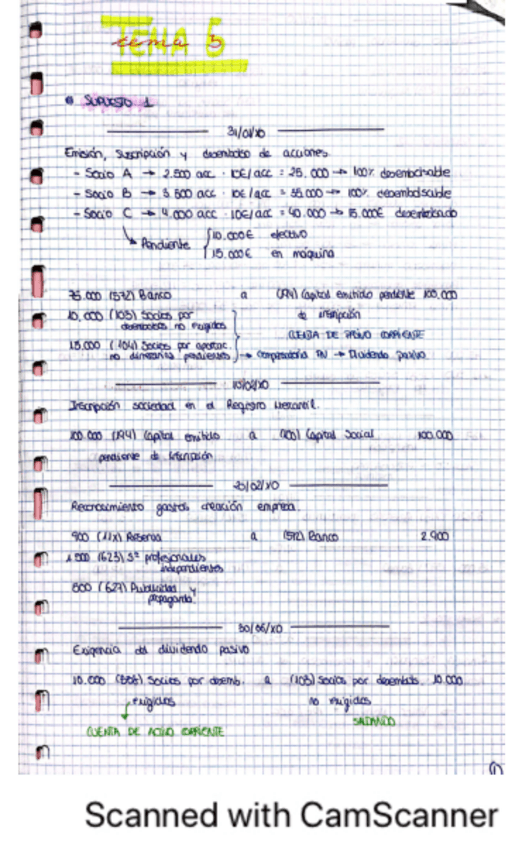 TEMA 5
tema 5
SUPUESTO 1
31/01/X0
Emisión, suscripción y desembolso de acciones
- Socio A → 2.500 acc · 10€/acc = 25.000 → 100% desembolsable
- Socio B → 5.500 acc · 10€/acc = 55.000 → 100% desembolsable
- Socio C → 4.000 acc · 10€/acc = 40.000 → 15.000€ desembolsado
Pendiente { 10.000€ efectivo
15.000€ en máquina
75.000 (572) Banco a (194) Capital emitido pendiente 100.000
de inscripción
10.000 (103) Socios por
desembolsos no exigidos
CUENTA DE PASIVO CORRIENTE
15.000 (104) Socios por aportac.
no dinerarias pendientes → Compensatoria PN → Dividendo pasivo
10/02/X0
Inscripción sociedad en el Registro Mercantil.
100.000 (194) Capital emitido a (100) Capital Social 100.000
pendiente de inscripción
/02/X0
Reconocimiento gastos creación empresa.
900 (11X) Reservas a (572) Banco 2.900
(623) Sº profesionales
independientes
(627) Publicidad y
propaganda
30/06/X0
Exigencia del dividendo pasivo
10.000 (558) Socios por desemb. a (103) Socios por desembols. 10.000
exigidos no exigidos
SALDANDO
CUENTA DE ACTIVO CORRIENTE
1
Scanned with CamScanner